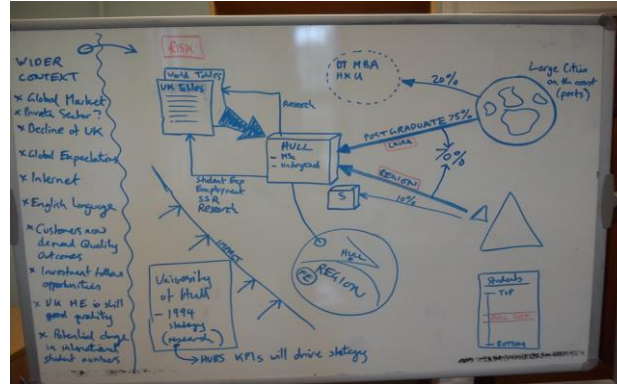 WIDER
CONTEXT
* Global Market
* Private Sector?
* Decline of UK
* Global Expectations
* Internet
* English Language
* Customers now
demand Quality
Outcomes
* Investment follows
opportunities
* UK HE is still
good quality
* Potential change
in international
student numbers
RISK
World Tables
UK Tables
Research
Student Exp
Employment
SSR
Research
IMPACT
University
of Hull
- 1994
strategy
(research)
HUBS KPIs will drive strategy
HULL
- MSc
- Undergrad
S
10%
HULL
REGION
FE
OT MBA
HKU
20%
Large Cities
on the coast
(ports)
POSTGRADUATE 75%
CHINA
70%
REGION
Students
TOP
BOTTOM